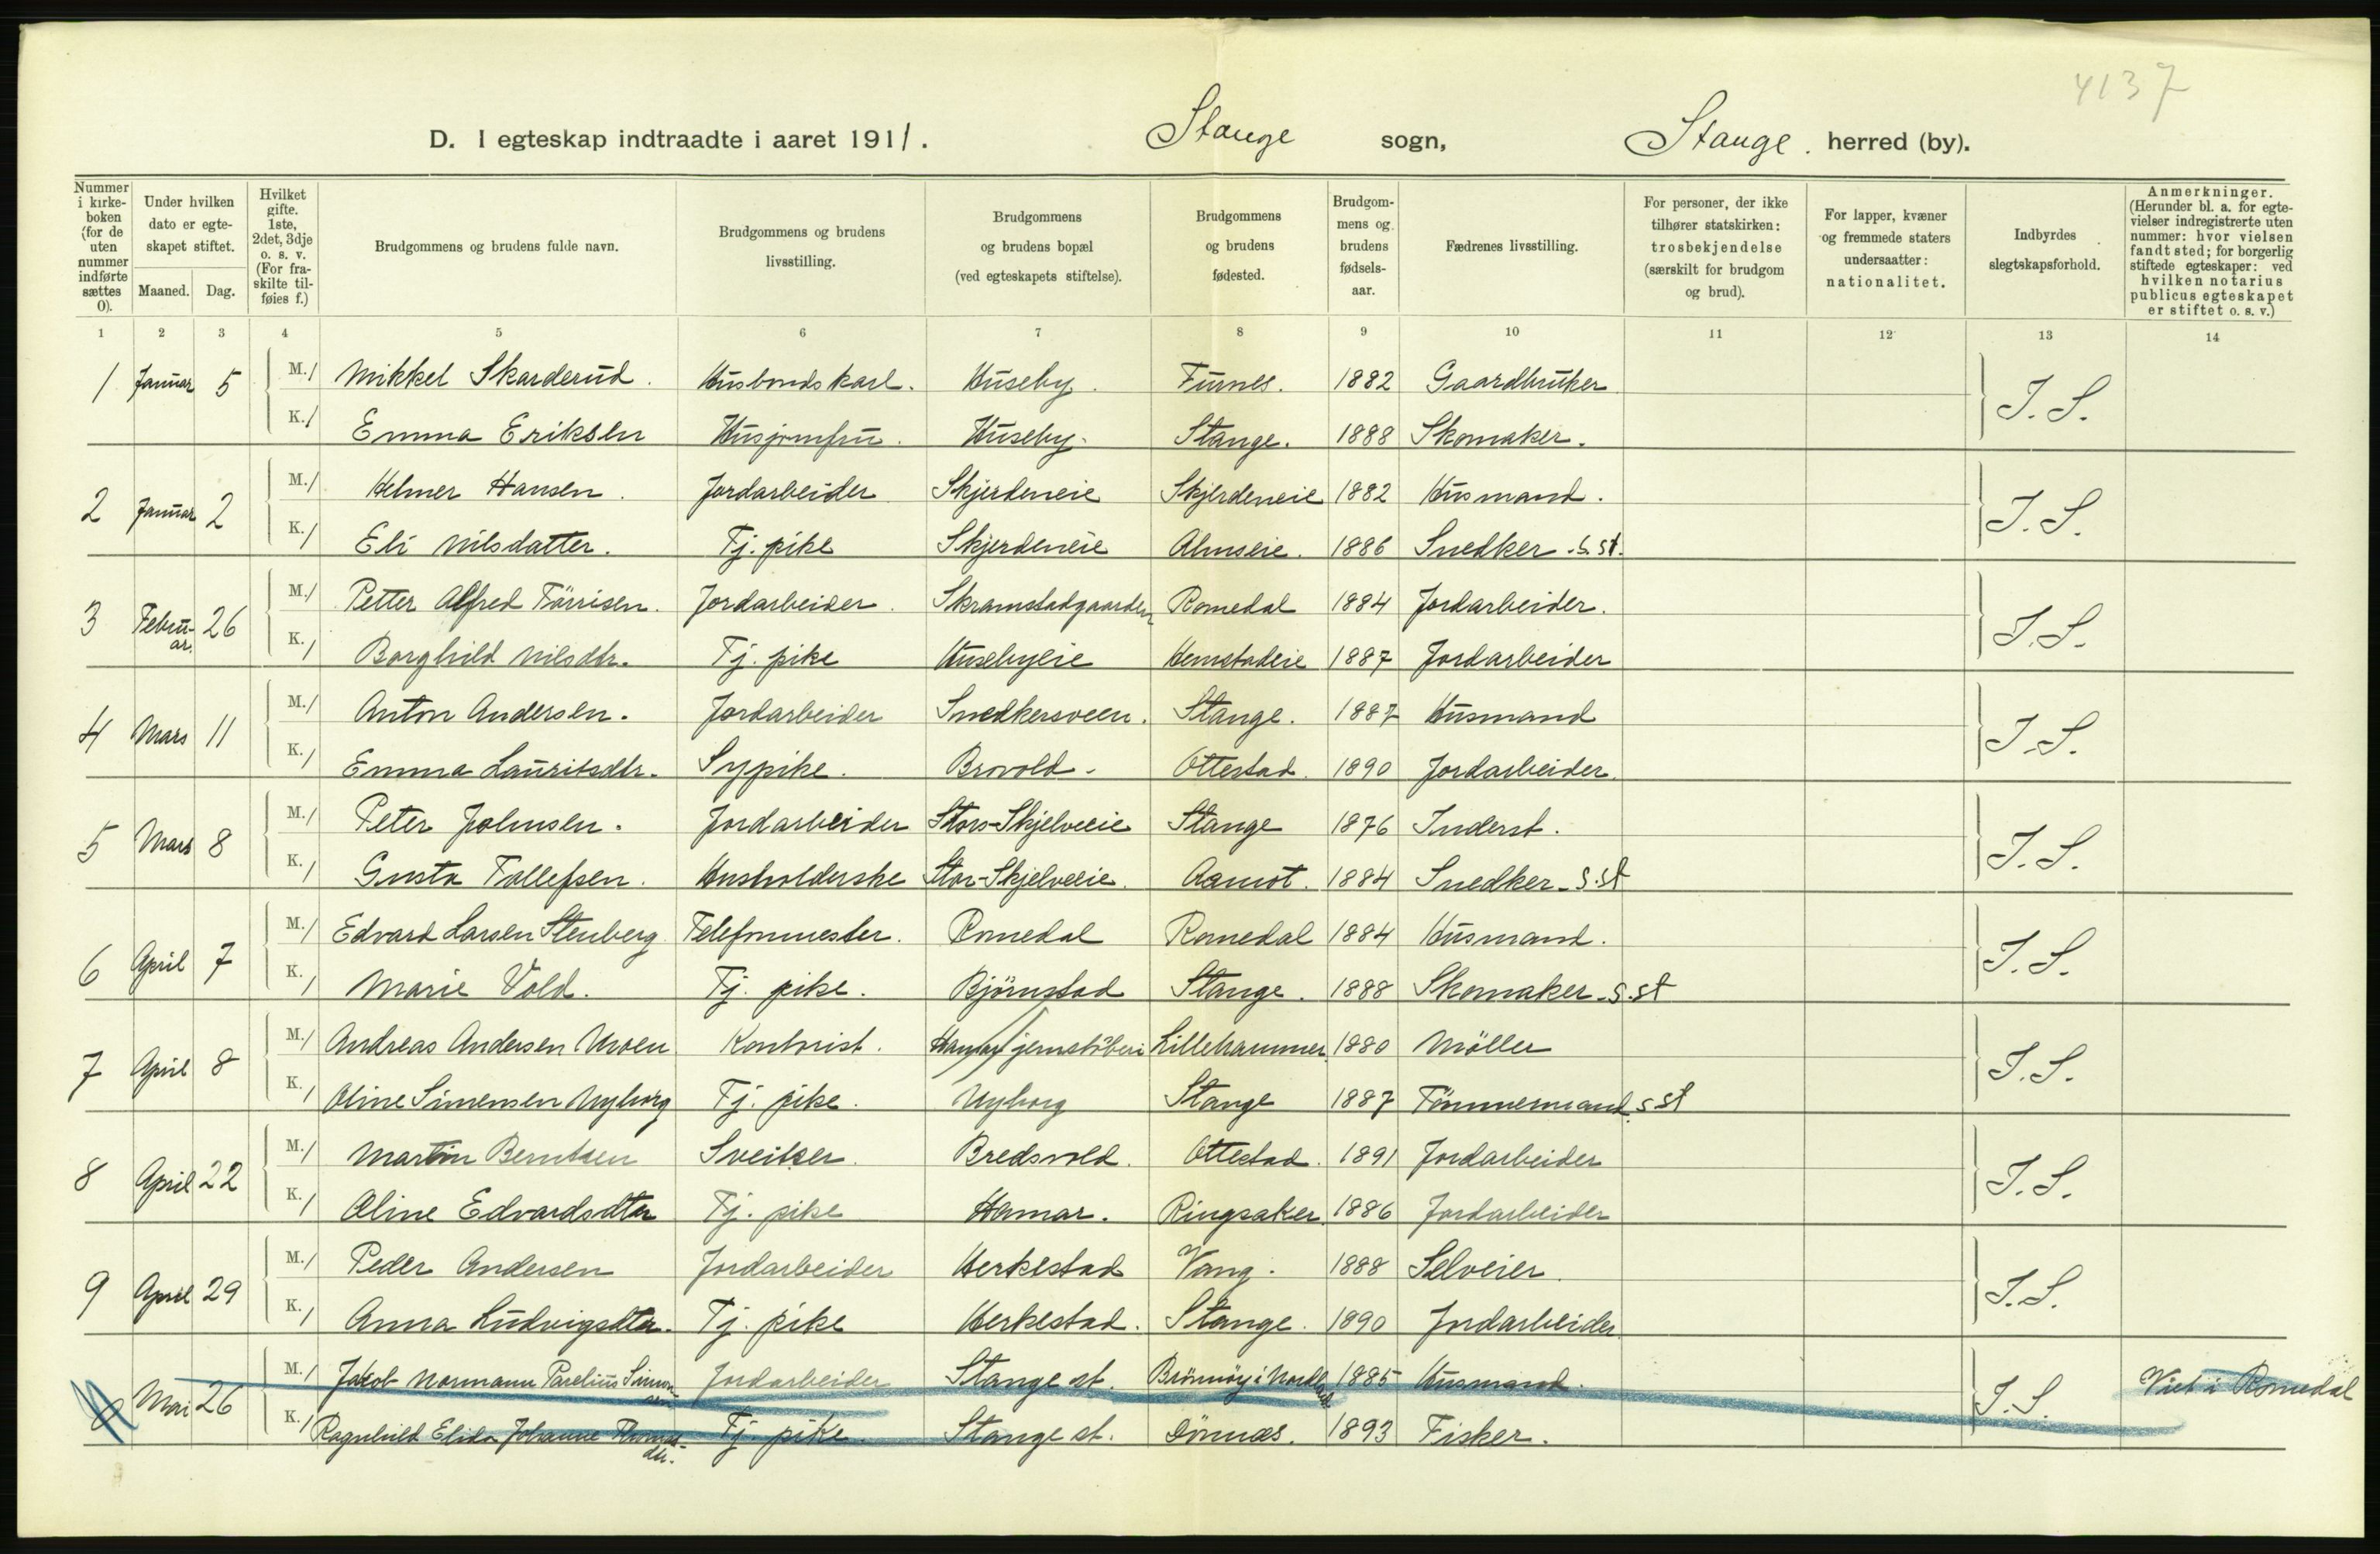 4137
D. I egteskap indtraadte i aaret 1911. Stange sogn, Stange. herred (by).
Nummer i kirke-boken (for de uten nummer indførte sættes 0).
Under hvilken dato er egte-skapet stiftet.
Maaned. Dag.
Hvilket gifte. 1ste, 2det, 3dje o. s. v. (For fra-skilte til-føies f.)
Brudgommens og brudens fulde navn.
Brudgommens og brudens livsstilling.
Brudgommens og brudens bopæl (ved egteskapets stiftelse).
Brudgommens og brudens fødested.
Brudgom-mens og brudens fødsels-aar.
Fædrenes livsstilling.
For personer, der ikke tilhører statskirken: trosbekjendelse (særskilt for brudgom og brud).
For lapper, kvæner og fremmede staters undersaatter: nationalitet.
Indbyrdes slegtskapsforhold.
Anmerkninger. (Herunder bl. a. for egte-vielser indregistrerte uten nummer: hvor vielsen fandt sted; for borgerlig stiftede egteskaper: ved hvilken notarius publicus egteskapet er stiftet o. s. v.)
1 2 3 4 5 6 7 8 9 10 11 12 13 14
1 Januar 5 M. / Mikkel Skarderud. Husbondskarl. Huseby. Furnes. 1882 Gaardbruker I. S.
K. / Emma Eriksen Husjomfru. Huseby. Stange. 1888 Skomaker.
2 Januar 2 M. / Helmer Hansen. Jordarbeider Skjerdeneie Skjerdeneie 1882 Husmand. I. S.
K. / Eli Nilsdatter. Tj. pike Skjerdeneie Almseie. 1886 Snedker. s. st.
3 Februar. 26 M. / Petter Alfred Törrisen. Jordarbeider. Skramstadgaarden Romedal 1884 Jordarbeider. I. S.
K. / Borghild Nilsdtr. Tj. pike Husebyeie Hemstadeie 1887 Jordarbeider
4 Mars 11 M. / Anton Andersen. Jordarbeider Snedkersveen. Stange. 1887 Husmand I. S.
K. / Emma Lauritsdtr. Sypike. Brovold. Ottestad. 1890 Jordarbeider.
5 Mars 8 M. / Peter Johnsen. Jordarbeider Stor-Skjelveeie Stange 1876 Inderst. I. S.
K. / Gusta Tollefsen. Husholderske Stor-Skjelveeie. Aamot. 1884 Snedker - s. st
6 April 7 M. / Edvard Larsen Stenberg Telefonmester. Romedal Romedal 1884 Husmand. I. S.
K. / Marie Vold. Tj. pike. Björnstad Stange. 1888 Skomaker - s. st
7 April 8 M. / Andreas Andersen Moen Kontorist. Hamar jernstöberi Lillehammer 1880 Möller I. S.
K. / Oline Simensen Nyborg Tj. pike. Nyborg Stange 1887 Tömmermand s. st
8 April 22 M. / Martin Berntsen Sveitser. Bredsvold. Ottestad. 1891 Jordarbeider I. S.
K. / Oline Edvardsdtr Tj. pike Hamar. Ringsaker 1886 Jordarbeider
9 April 29 M. / Peder Andersen Jordarbeider Herkestad Vang. 1888 Selveier. I. S.
K. / Anna Ludvigsdtr. Tj. pike Herkestad. Stange. 1890 Jordarbeider
0 Mai 26 M. / Jakob Normann Parelius Simonsen Jordarbeider Stange st. Brönnöy i Nordland 1885 Husmand. I. S. Viet i Romedal
K. / Ragnhild Elida Johanne Thomasdtr. Tj. pike. Stange st. Dönnæs. 1893 Fisker.